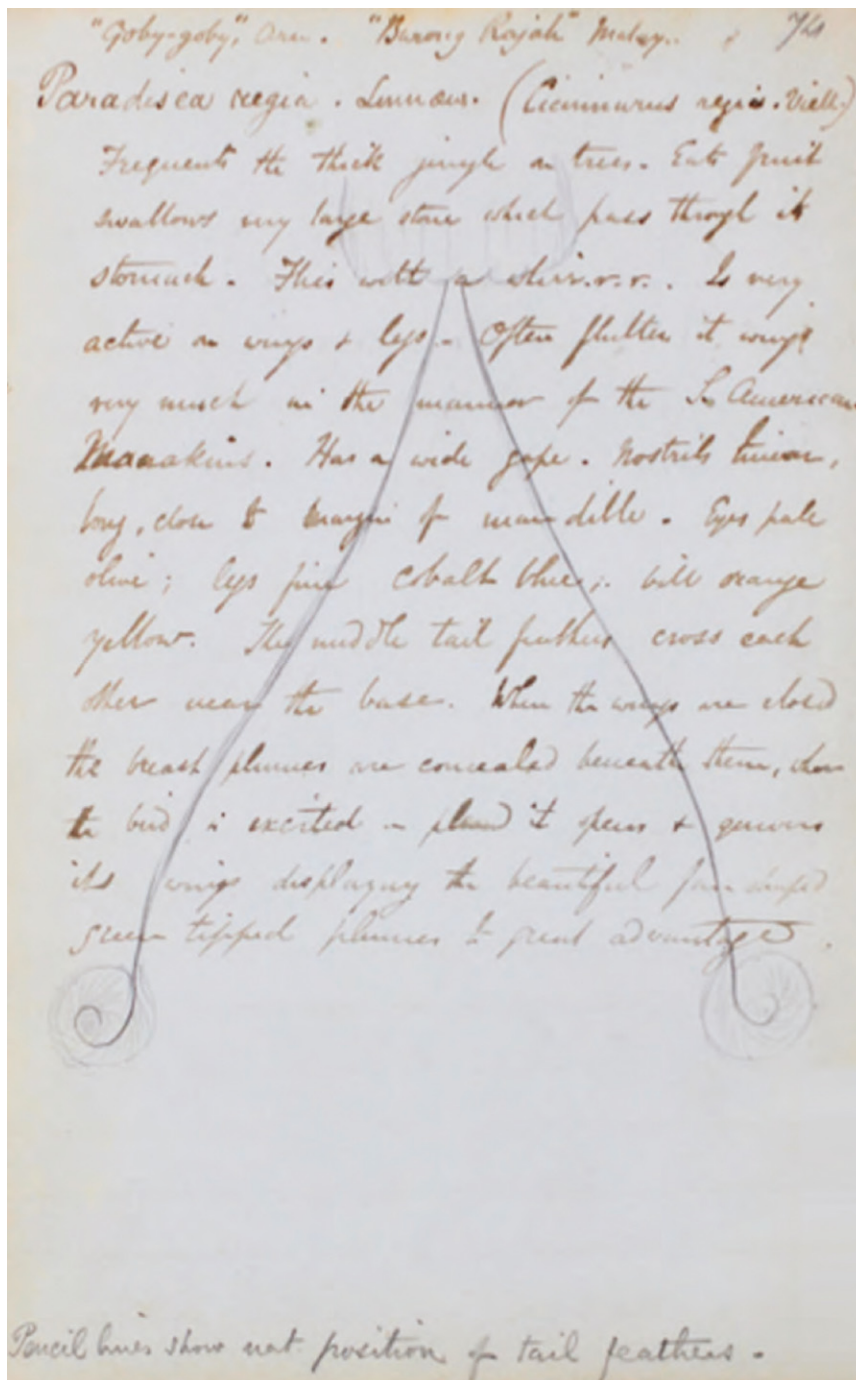 "Goby-goby", Aru. "Burong Rajah" Malay. 74
Paradisea regia. Linnæus. (Cicinnurus regis. Vieill.)
Frequents the thick jungle on trees. Eats fruit
swallows very large stone which pass through its
stomach. Flies with a whir.r.r.. Is very
active on wings & legs. Often flutters its wings
very much in the manner of the S. American
Manakins. Has a wide gape. Nostrils linear,
long, close to margin of mandible. Eyes pale
olive; legs fine cobalt blue; bill orange
yellow. The middle tail feathers cross each
other near the base. When the wings are closed
the breast plumes are concealed beneath them, when
the bird is excited it opens & quivers
its wings displaying the beautiful fan shaped
green tipped plumes to great advantage.
Pencil lines show nat. position of tail feathers.